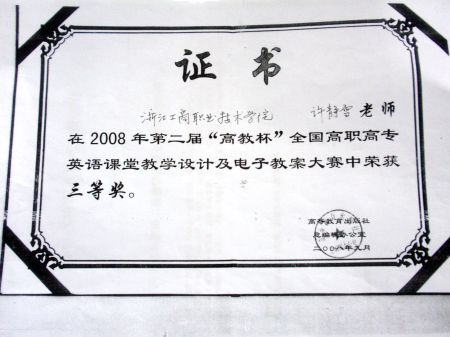 证书
浙江工商职业技术学院 许静雪 老师
在2008年第二届“高教杯”全国高职高专
英语课堂教学设计及电子教案大赛中荣获
三等奖。
高等教育出版社
总编辑办公室
二〇〇八年九月